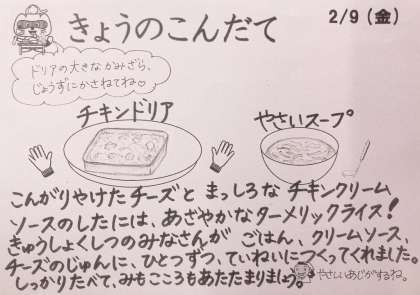 きょうのこんだて
2/9（金）
ドリアの大きなかみざら、
じょうずにかさねてね♡
チキンドリア
やさいスープ
こんがりやけたチーズと まっしろな チキンクリーム
ソースのしたには、あざやかなターメリックライス！
きゅうしょくしつのみなさんが ごはん、クリームソース、
チーズのじゅんに、ひとつずつ、ていねいにつくってくれました。
しっかりたべて、みもこころもあたたまりましょう。
やさしいあじがするね。